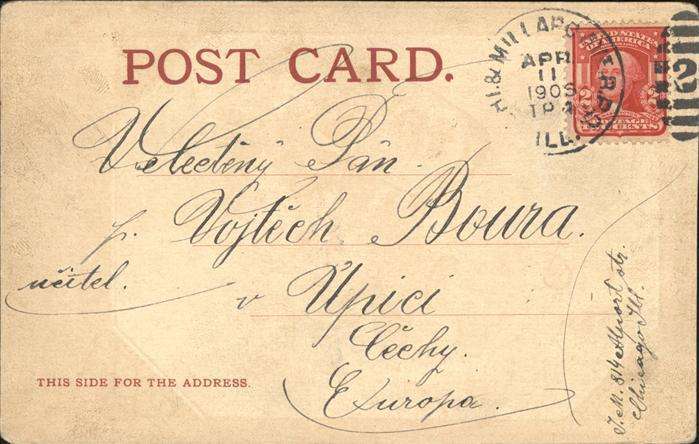 POST CARD.
HI. & MILLARD AVE. R.P.O.
APR
11
1905
TR 4
ILL.
UNITED STATES OF AMERICA
2 2
Velectěný Pán
p. Vojtěch Boura.
učitel.
v Úpici
Čechy.
Europa.
THIS SIDE FOR THE ADDRESS.
J. M. 814 Allport str.
Chicago Ill.